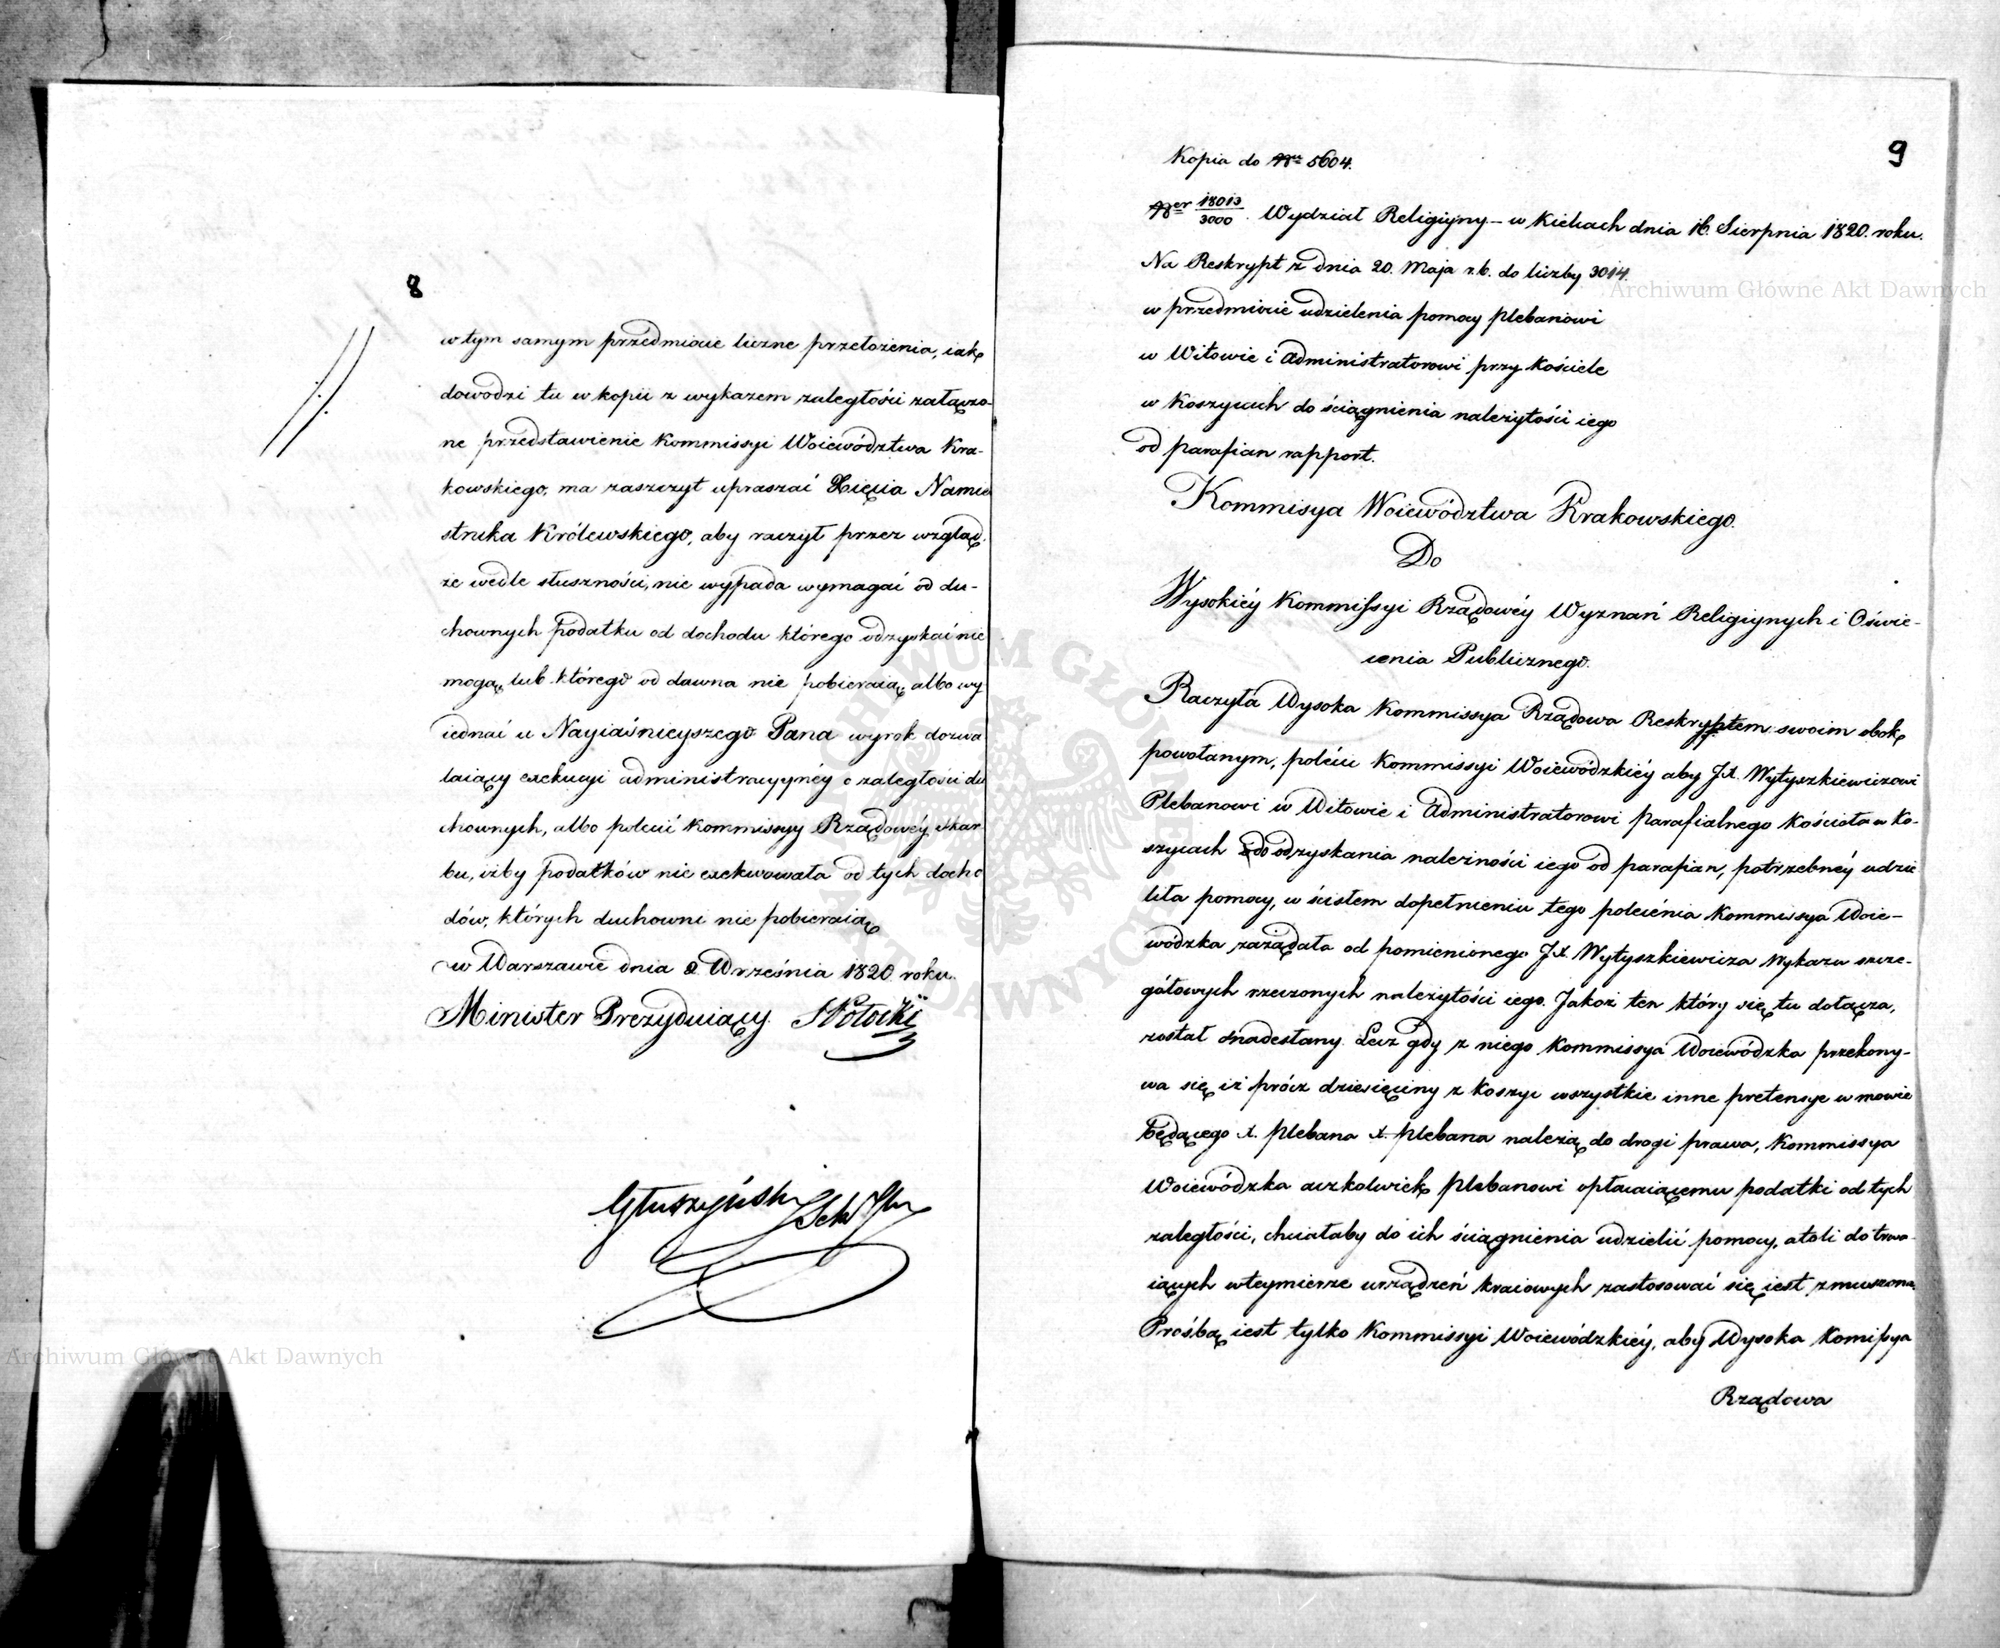 8
w tym samym przedmiocie liczne przełożenia, iak
dowodzi tu w kopii z wykazem zaległości załączo-
ne przedstawienie Kommissyi Woiewództwa Kra-
kowskiego, ma zaszczyt upraszać Xięcia Namie
stnika Królewskiego, aby raczył przez wzgląd,
że wedle słuszności, nie wypada wymagać od du-
chownych podatku od dochodu którego odzyskać nie
mogą, lub którego od dawna nie pobieraią, albo wy
iednać u Nayiaśnieyszego Pana wyrok dozwa
laiący exekucyi administracyynéy o zaległości du
chownych, albo polecić Kommissyy Rządowéy Skar
bu, iżby podatków nie exekwowała od tych docho
dów, których duchowni nie pobieraią
w Warszawie dnia 2 Września 1820 roku.
Minister Prezyduiący SPotocki
Głuszyński
9
Kopia do Nru 5604.
Ner 18013/3000. Wydział Religijny – w Kielcach dnia 16. Sierpnia 1820. roku.
Na Reskrypt z dnia 20. Maja r.b. do liczby 3014.
w przedmiocie udzielenia pomocy plebanowi
w Witowie i Administratorowi przy Kościele
w Koszycach do ściągnienia należytości iego
od parafian rapport.
Kommisya Woiewództwa Krakowskiego.
Do
Wysokiéy Kommissyi Rządowéy Wyznań Religiynych i Oświe-
cenia Publicznego.
Raczyła Wysoka Kommissya Rządowa Reskryptem swoim obok
powołanym, polécić Kommissyi Woiewódzkiéy aby JX. Wytyszkiewiczowi
Plebanowi w Witowie i Administratorowi parafialnego Kościoła w Ko-
szycach do odzyskania należności iego od parafian, potrzebnéy udzie
liła pomocy, w ścisłem dopełnieniu tego polecénia Kommissya Woie-
wódzka zażądała od pomienionego JX. Wytyszkiewicza wykazu szcze-
gółowych rzeczonych należytości iego. Jakoż ten który się tu dołącza,
został nadesłany. Lecz gdy z niego Kommissya Woiewódzka przekony-
wa się iż prócz dziesięciny z Koszyc wszystkie inne pretensye w mowie
będącego X. plebana X. plebana należą do drogi prawa, Kommissya
Woiewódzka aczkolwiek plebanowi opłacaiącemu podatki od tych
zaległości, chciałaby do ich ściągnienia udzielić pomocy, atoli do trwa-
iących wteymierze urządzeń kraiowych zastosować się iest zmuszona.
Prośbą iest tylko Kommissyi Woiewódzkiéy, aby Wysoka Komissya
Rządowa
Archiwum Główne Akt Dawnych
Archiwum Główne Akt Dawnych
ARCHIWUM GŁÓWNE AKT DAWNYCH